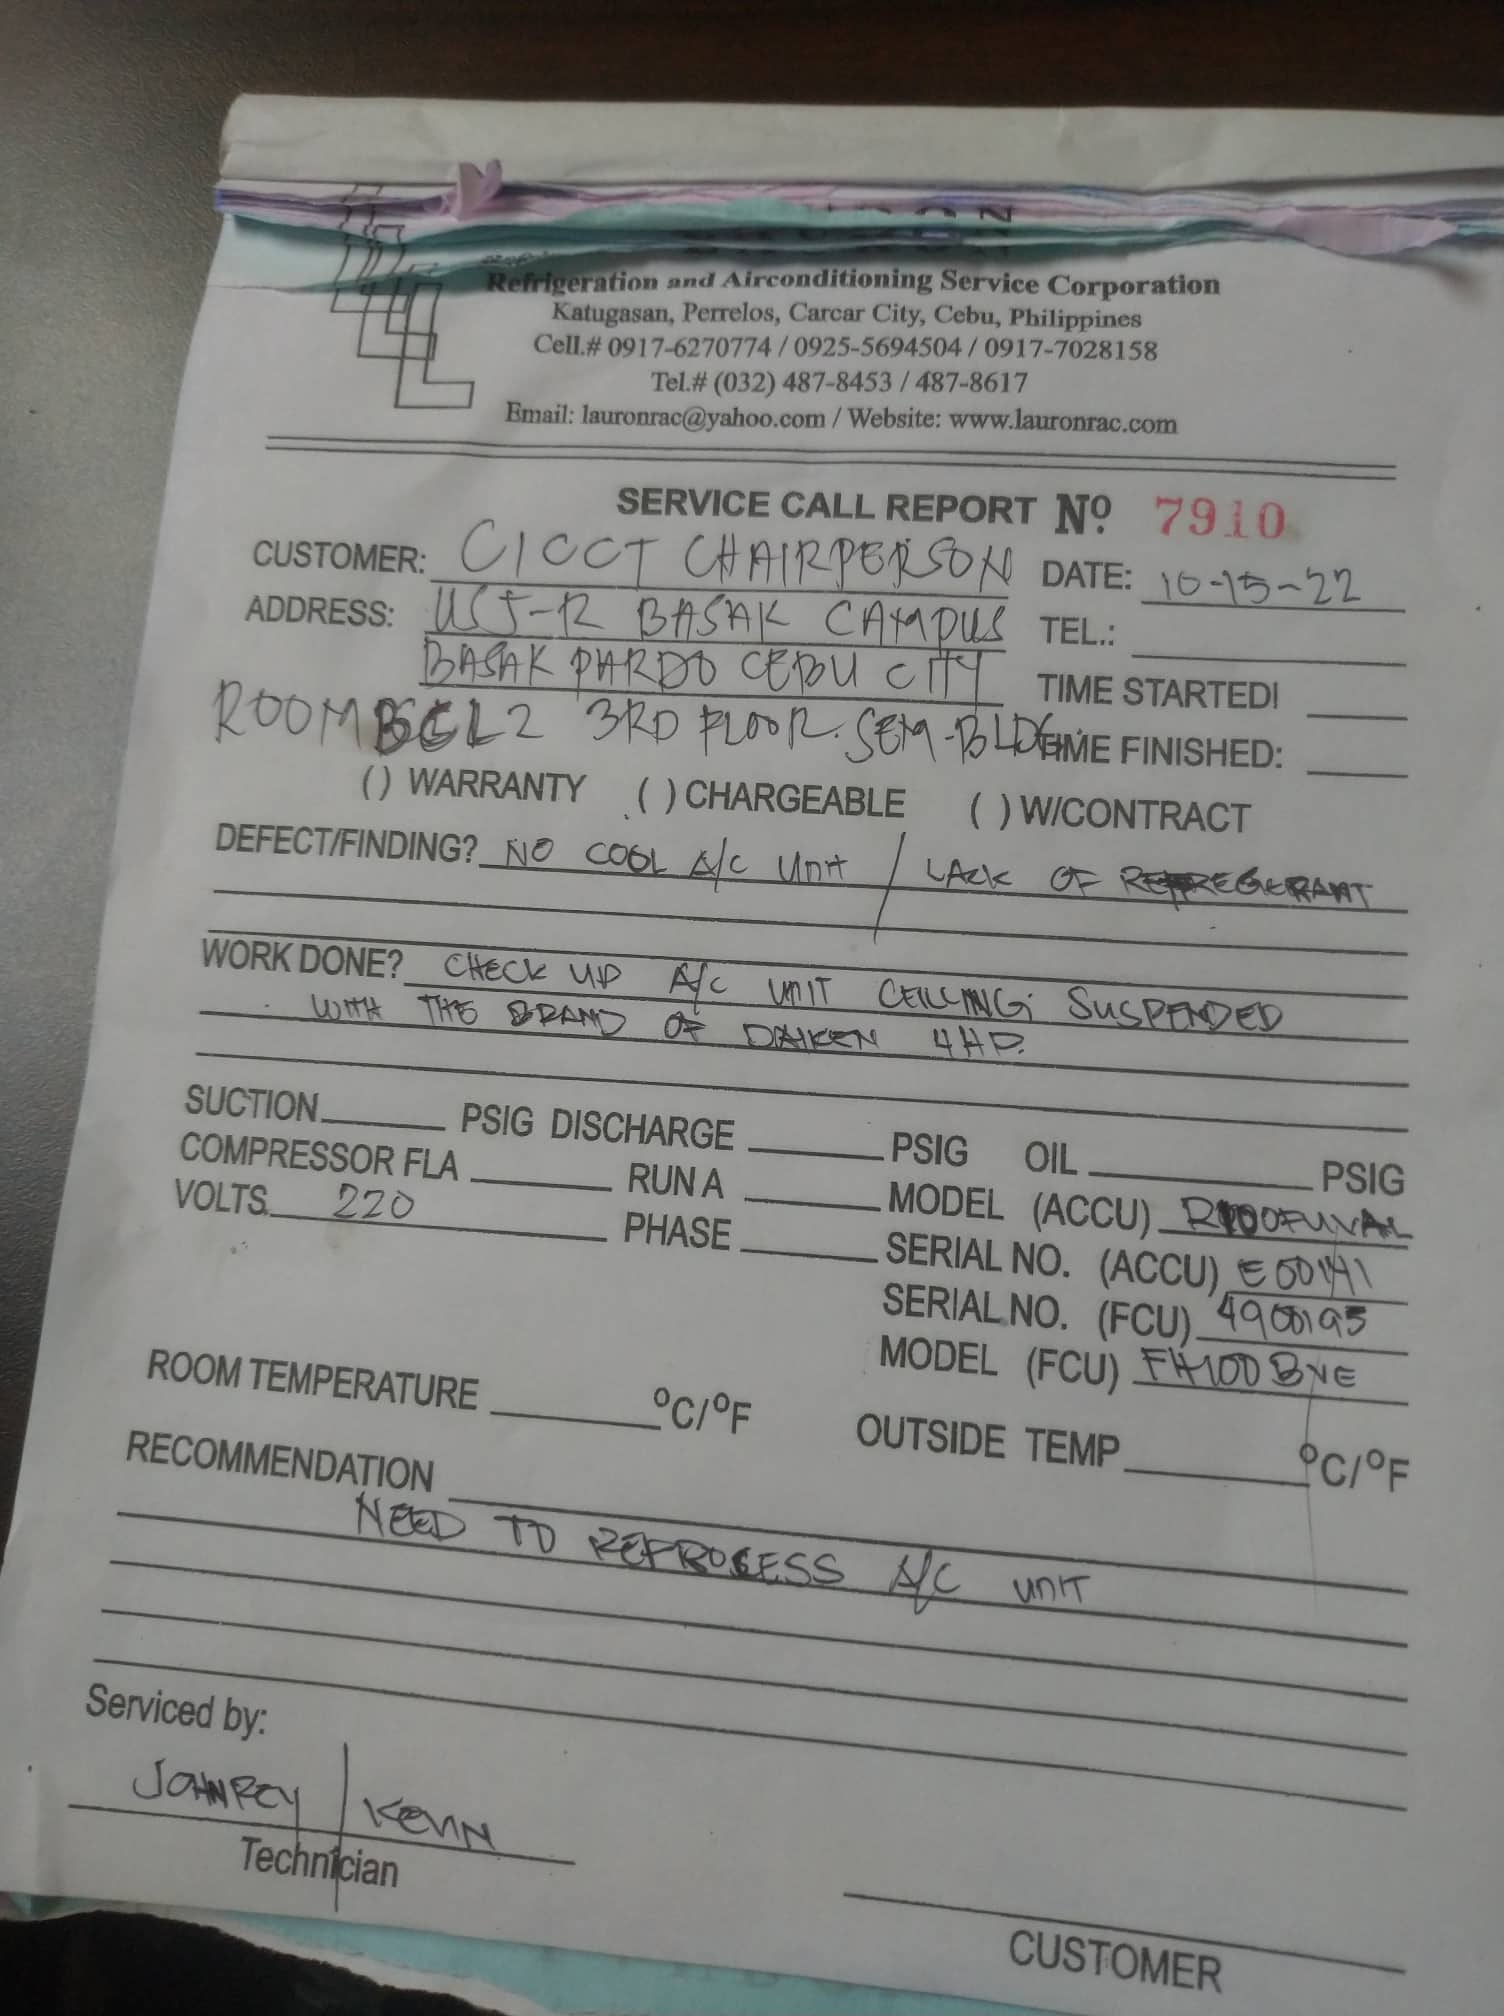 Refrigeration and Airconditioning Service Corporation
Katugasan, Perrelos, Carcar City, Cebu, Philippines
Cell.# 0917-6270774 / 0925-5694504 / 0917-7028158
Tel.# (032) 487-8453 / 487-8617
Email: lauronrac@yahoo.com / Website: www.lauronrac.com
SERVICE CALL REPORT Nº 7910
CUSTOMER: CICCT CHAIRPERSON DATE: 10-15-22
ADDRESS: USJ-R BASAK CAMPUS TEL.:
BASAK PARDO CEBU CITY TIME STARTED:
ROOM 3RD FLOOR. SEM-BLDG. TIME FINISHED:
( ) WARRANTY ( ) CHARGEABLE ( ) W/CONTRACT
DEFECT/FINDING? NO COOL A/C UNIT / LACK OF REFREGERANT
WORK DONE? CHECK UP A/C UNIT CEILLING SUSPENDED
WITH THE BRAND OF DAIKEN 4HP.
SUCTION PSIG DISCHARGE PSIG OIL PSIG
COMPRESSOR FLA RUN A MODEL (ACCU)
VOLTS 220 PHASE SERIAL NO. (ACCU) E00141
SERIAL NO. (FCU) 4900195
MODEL (FCU) FH100BVE
ROOM TEMPERATURE °C/°F OUTSIDE TEMP °C/°F
RECOMMENDATION
NEED TO REPROCESS A/C UNIT
Serviced by:
JOHNREY / KEVIN
Technician
CUSTOMER